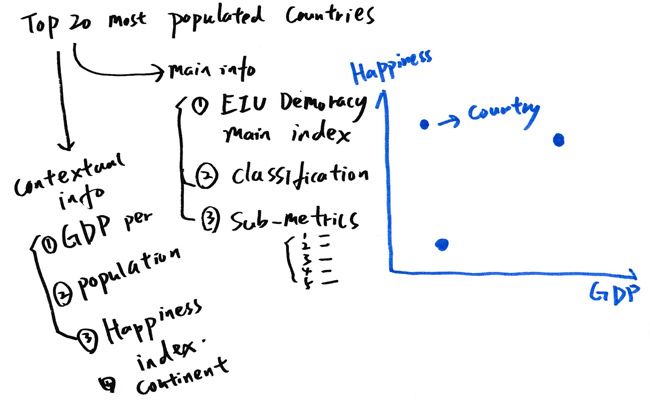 Top 20 most populated Countries
main info
① EIU Demoracy
main index
② classification
③ Sub-metrics
1 –
2 –
3 –
4 –
5 –
contextual
info
① GDP per
② population
③ Happiness
index.
④ continent
Happiness
→ Country
GDP